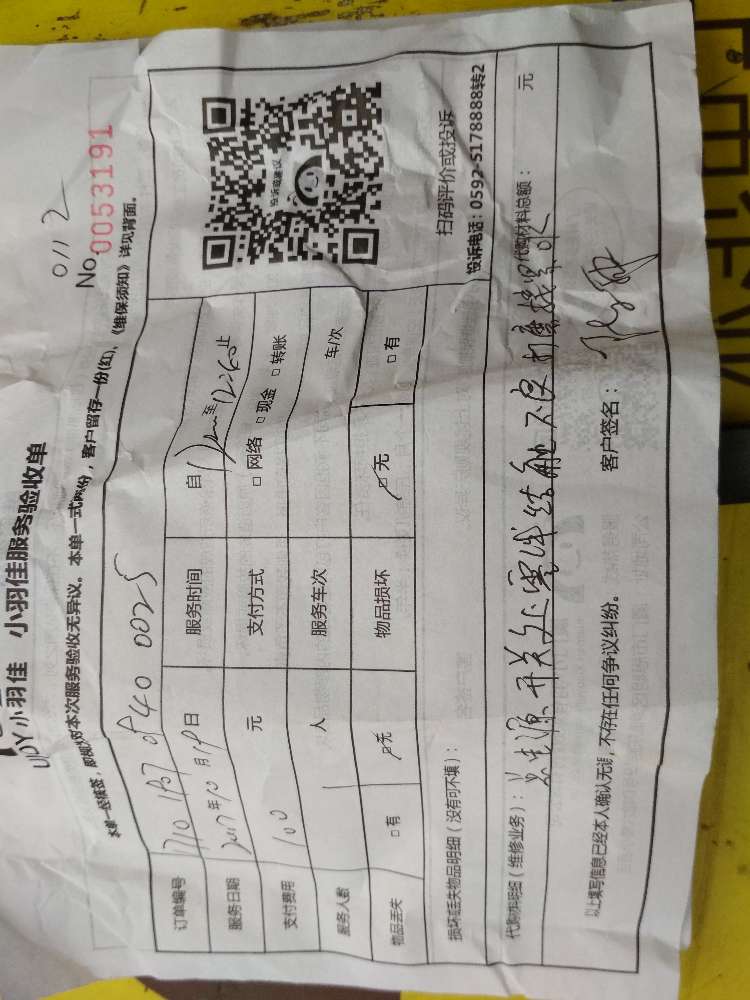 0112
小羽佳 小羽佳服务验收单
No.0053191
对本次服务验收无异议。本单一式两份，客户留存一份(红)，《维保须知》详见背面。
订单编号
服务时间 自 至 12:60 止
服务日期 2017年10月19日
支付方式 □网络 □现金 □转账
支付费用 100 元
服务车次 车/次
服务人数 1 人
物品损坏 □无 □有
物品丢失 □有 □无
投诉或建议
扫码评价或投诉
投诉电话：0592-5178888转2
损坏或丢失物品明细（没有可不填）：
代购明细（维修业务）： 代购材料总额： 元
开关处零线接触不良
以上填写信息已经本人确认无误，不存在任何争议纠纷。 客户签名：